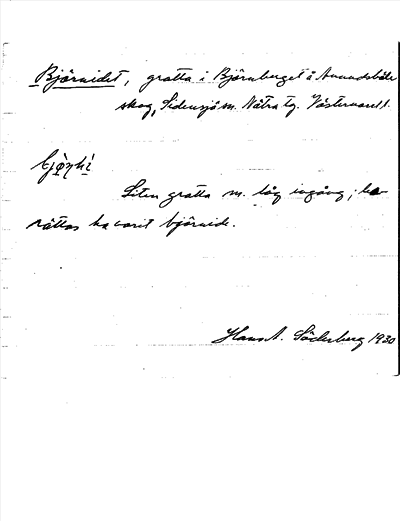 Björnidet, grotta i Björnberget å Amundsböle
skog, Sidensjö sn. Nätra tg. Västernorrl.
Liten grotta m. låg ingång; be-
rättas ha varit björnide.
Hans A. Söderberg 1930